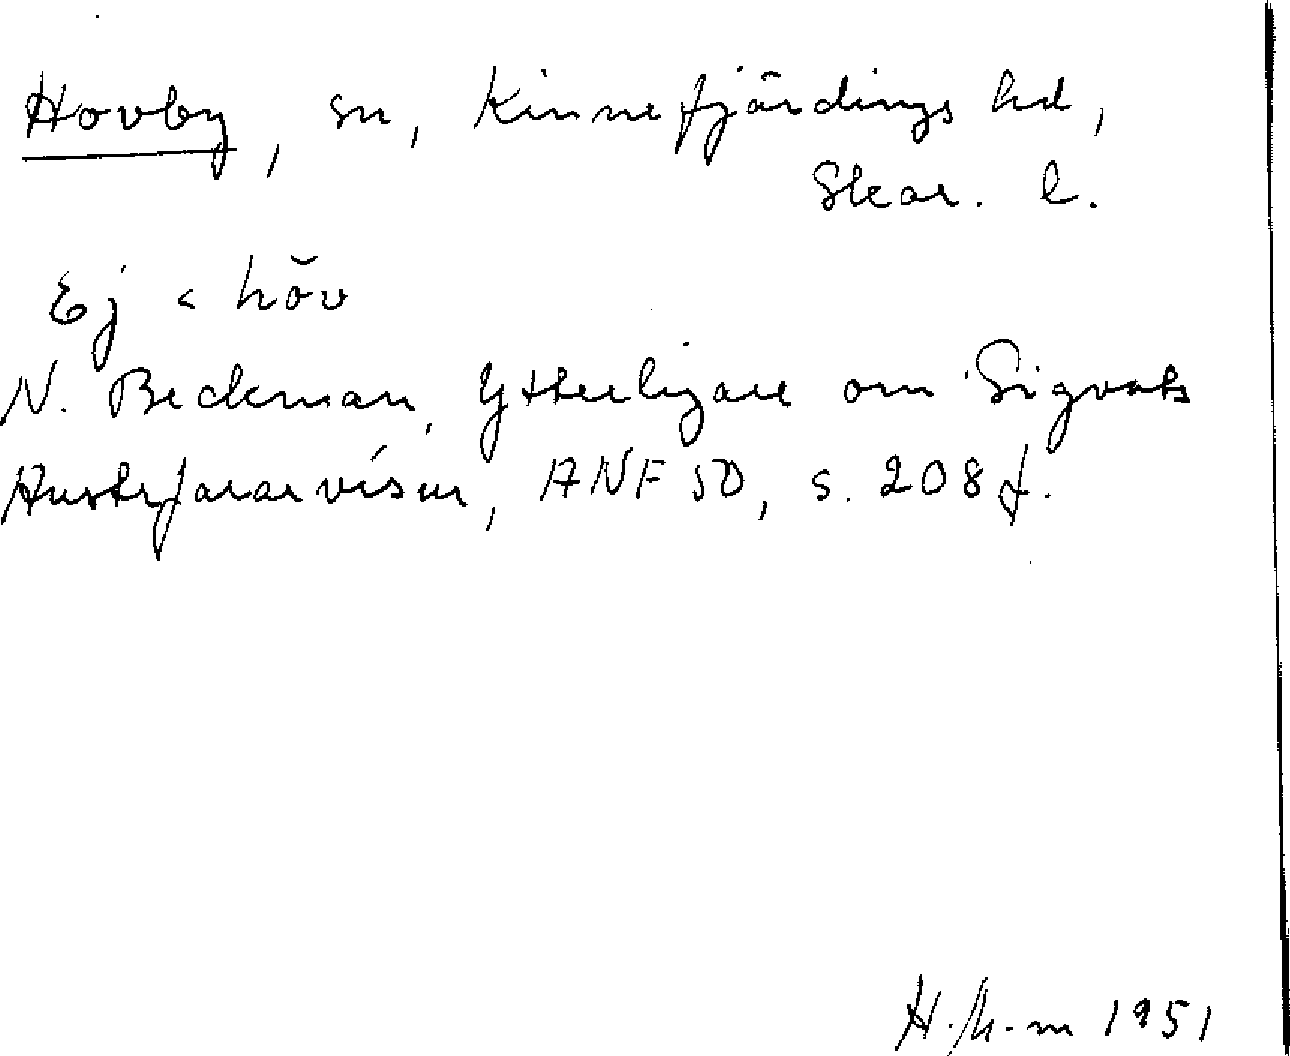 Hovby, sn, Kinnefjärdings hd,
Skar. l.
Ej < hŏv
N. Beckman, Ytterligare om Sigvats
Austrfararvísur, ANF 50, s. 208 f.
H. M-m 1951